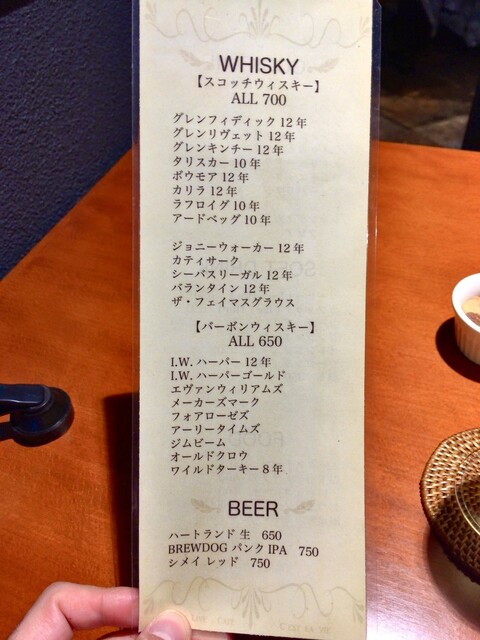 WHISKY
【スコッチウィスキー】
ALL 700
グレンフィディック 12 年
グレンリヴェット 12 年
グレンキンチー 12 年
タリスカー 10 年
ボウモア 12 年
カリラ 12 年
ラフロイグ 10 年
アードベッグ 10 年
ジョニーウォーカー 12 年
カティサーク
シーバスリーガル 12 年
バランタイン 12 年
ザ・フェイマスグラウス
【バーボンウィスキー】
ALL 650
I.W. ハーパー 12 年
I.W. ハーパーゴールド
エヴァンウィリアムズ
メーカーズマーク
フォアローゼズ
アーリータイムズ
ジムビーム
オールドクロウ
ワイルドターキー 8 年
BEER
ハートランド 生 650
BREWDOG パンク IPA 750
シメイ レッド 750